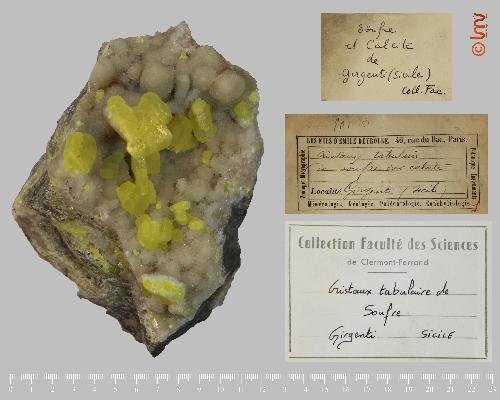 Soufre
et Calcite
de
Girgenti (Sicile)
Coll. Fac.
LES FILS D'EMILE DEYROLLE, 46, rue du Bac, Paris.
Cristaux tabulaires
de soufre sur calcite
Localité Girgenti (Sicile)
Minéralogie, Géologie, Paléontologie,
Collection Faculté des Sciences
de Clermont-Ferrand
Cristaux tabulaire de
Soufre
Girgenti SICILE
0 1 2 3 4 5 6 7 8 9 10 11 12 13 14 15 16 17 18 19 20 21 22 23